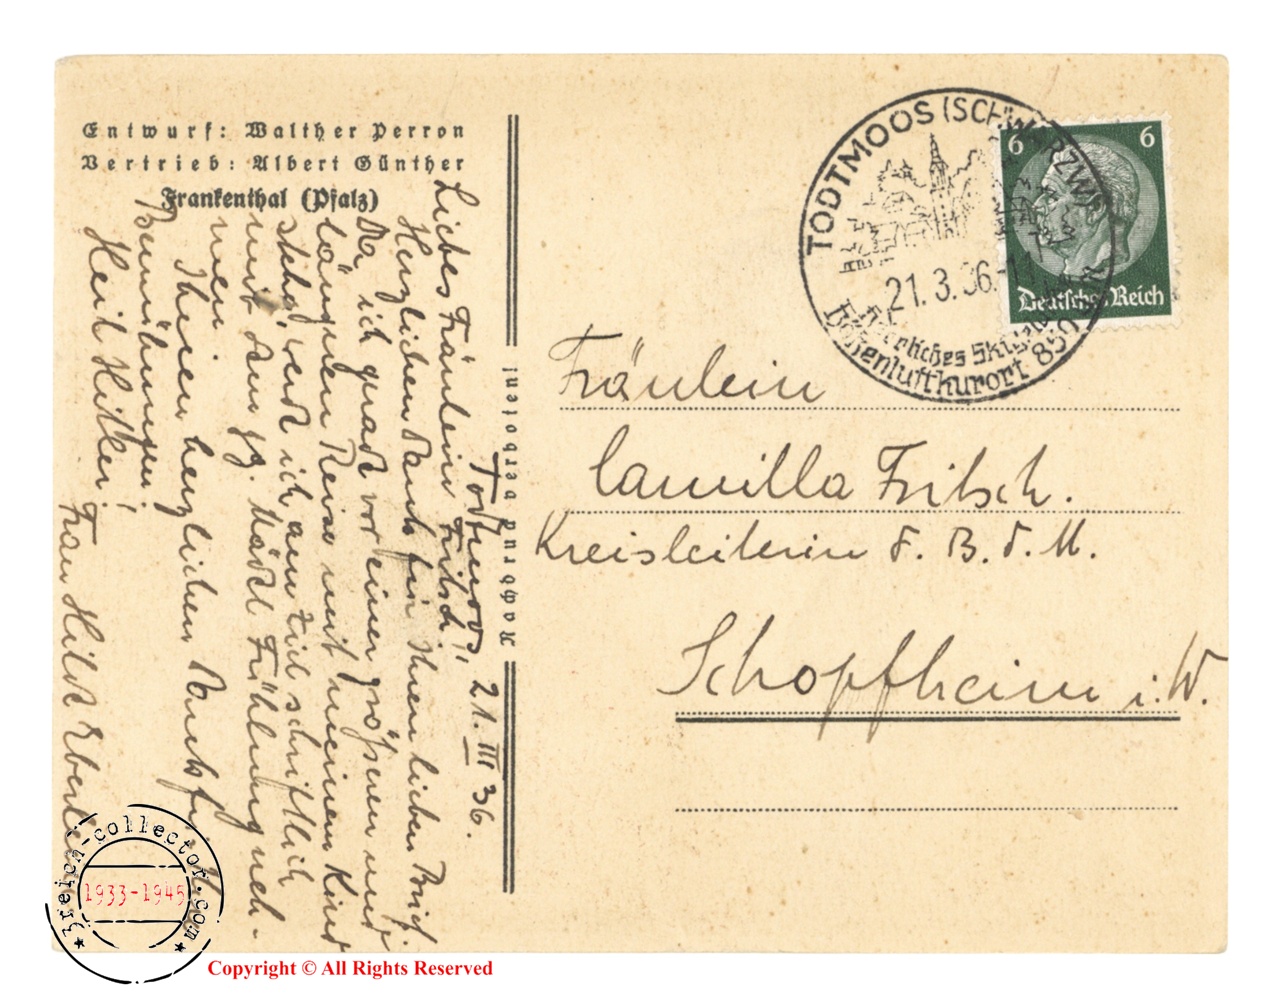 Entwurf: Walther Perron
Vertrieb: Albert Günther
Frankenthal (Pfalz)
Todtmoos, 21. III 36.
Liebes Fräulein Fritsch!
Herzlichen Dank für Ihren lieben Brief.
Da ich grade vor einer größeren und
längeren Reise mit meinem Kind
stehe, werde ich am Ziel schriftlich
mit dem Mädel Frühling neh-
men
Ihnen herzlichen Dank für
Bemühungen!
Heil Hitler!
Frau Hilde
Nachdruck verboten!
TODTMOOS (SCHWARZW)
21.3.36.-11
Herrliches
Höhenluftkurort 850
6 6
Deutsches Reich
Fräulein
Camilla Fritsch.
Kreisleiterin d. B.d.M.
Schopfheim i.W.
3reich-collector.com
1933-1945
Copyright © All Rights Reserved